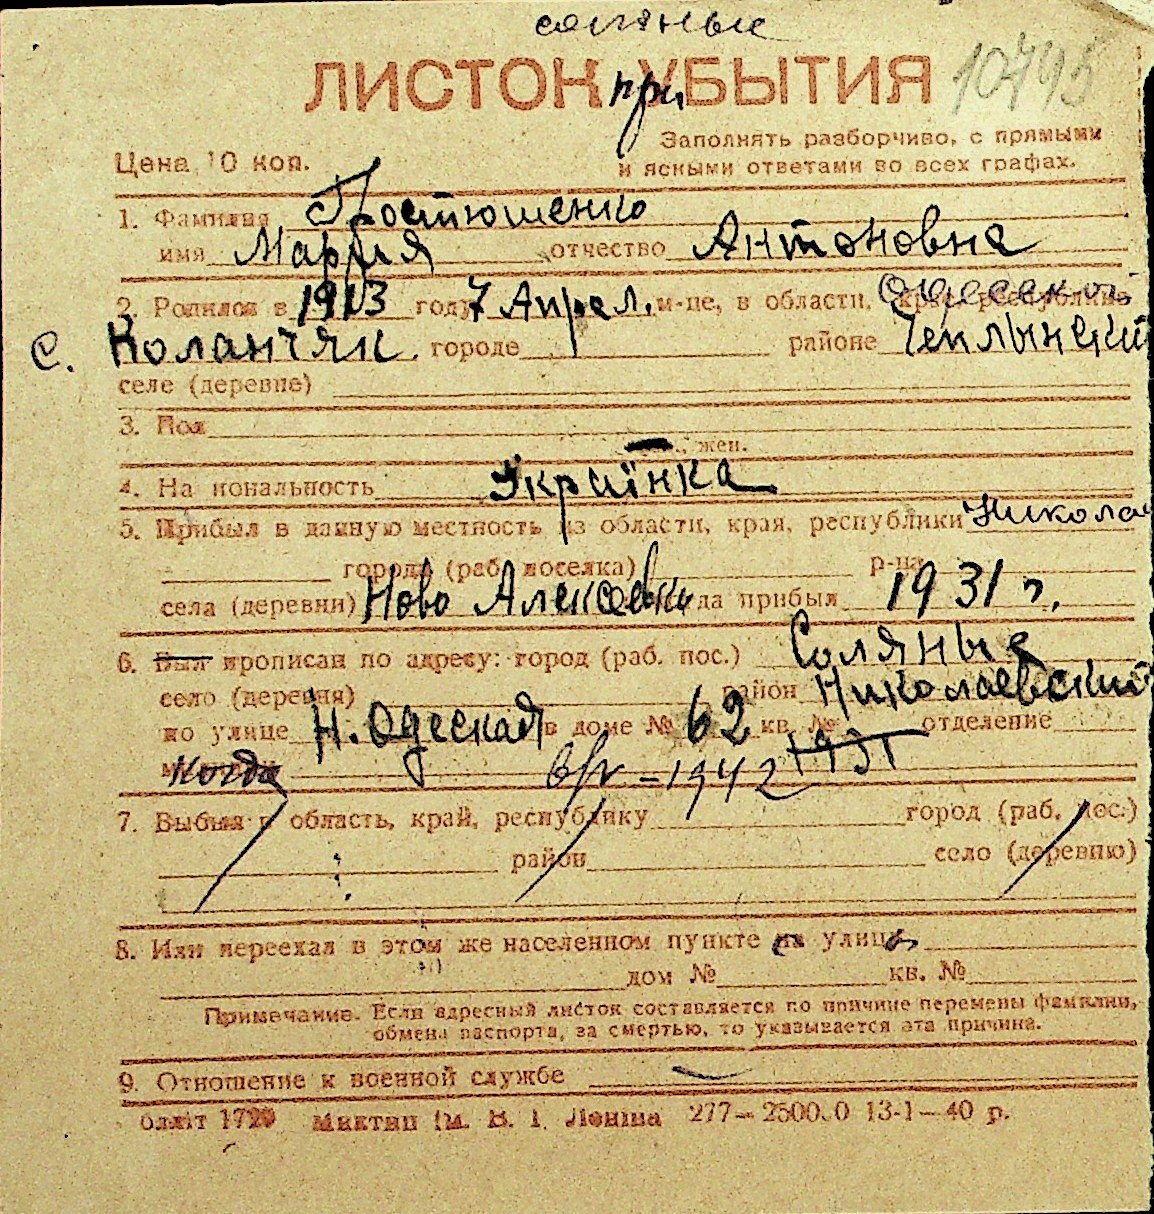 соляные
ЛИСТОК при УБЫТИЯ 10795
Заполнять разборчиво, с прямыми
Цена 10 коп. и ясными ответами во всех графах.
1. Фамилия Постюшенко
имя Мария отчество Антоновна
2. Родился в 1913 году 7 Апрел. м-це, в области, крае, республике Одесской
с. Коланчак городе районе Чеплынский
селе (деревне)
3. Пол
жен.
4. На иональность Украïнка
5. Прибыл в данную местность из области, края, республики Никола
города (раб. поселка) р-на
села (деревни) Ново Алексеевки да прибыл 1931 г.
6. Был прописан по адресу: город (раб. пос.) Соляные
село (деревня) район Николаевский
по улице Н. Одеская в доме № 62 кв. № отделение
Когда 1942 1931
7. Выбыл в область, край, республику город (раб. пос.)
район село (деревню)
8. Или переехал в этом же населенном пункте на улицу
дом № кв. №
Примечание. Если адресный листок составляется по причине перемены фамилии,
обмена паспорта, за смертью, то указывается эта причина.
9. Отношение к военной службе
1720 Миктип ім. В. І. Леніна 277—2500.0 13-1—40 р.